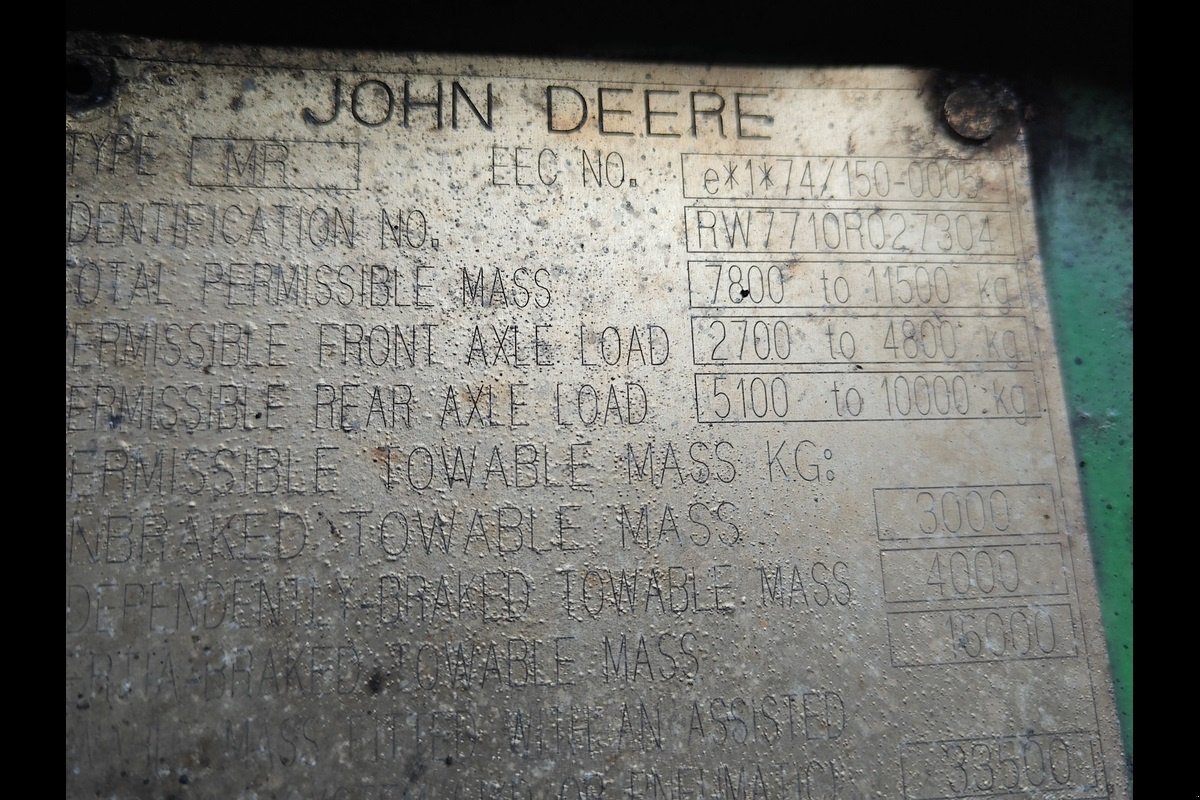 JOHN DEERE
TYPE MR EEC NO. e*1*74/150-0005
IDENTIFICATION NO. RW7710R027304
OTAL PERMISSIBLE MASS 7800 to 11500 kg
ERMISSIBLE FRONT AXLE LOAD 2700 to 4800 kg
ERMISSIBLE REAR AXLE LOAD 5100 to 10000 kg
ERMISSIBLE TOWABLE MASS KG:
NBRAKED TOWABLE MASS 3000
DEPENDENTLY-BRAKED TOWABLE MASS 4000
ERTIA-BRAKED TOWABLE MASS 16000
MASS FITTED WITH AN ASSISTED
OR PNEUMATIC 33500